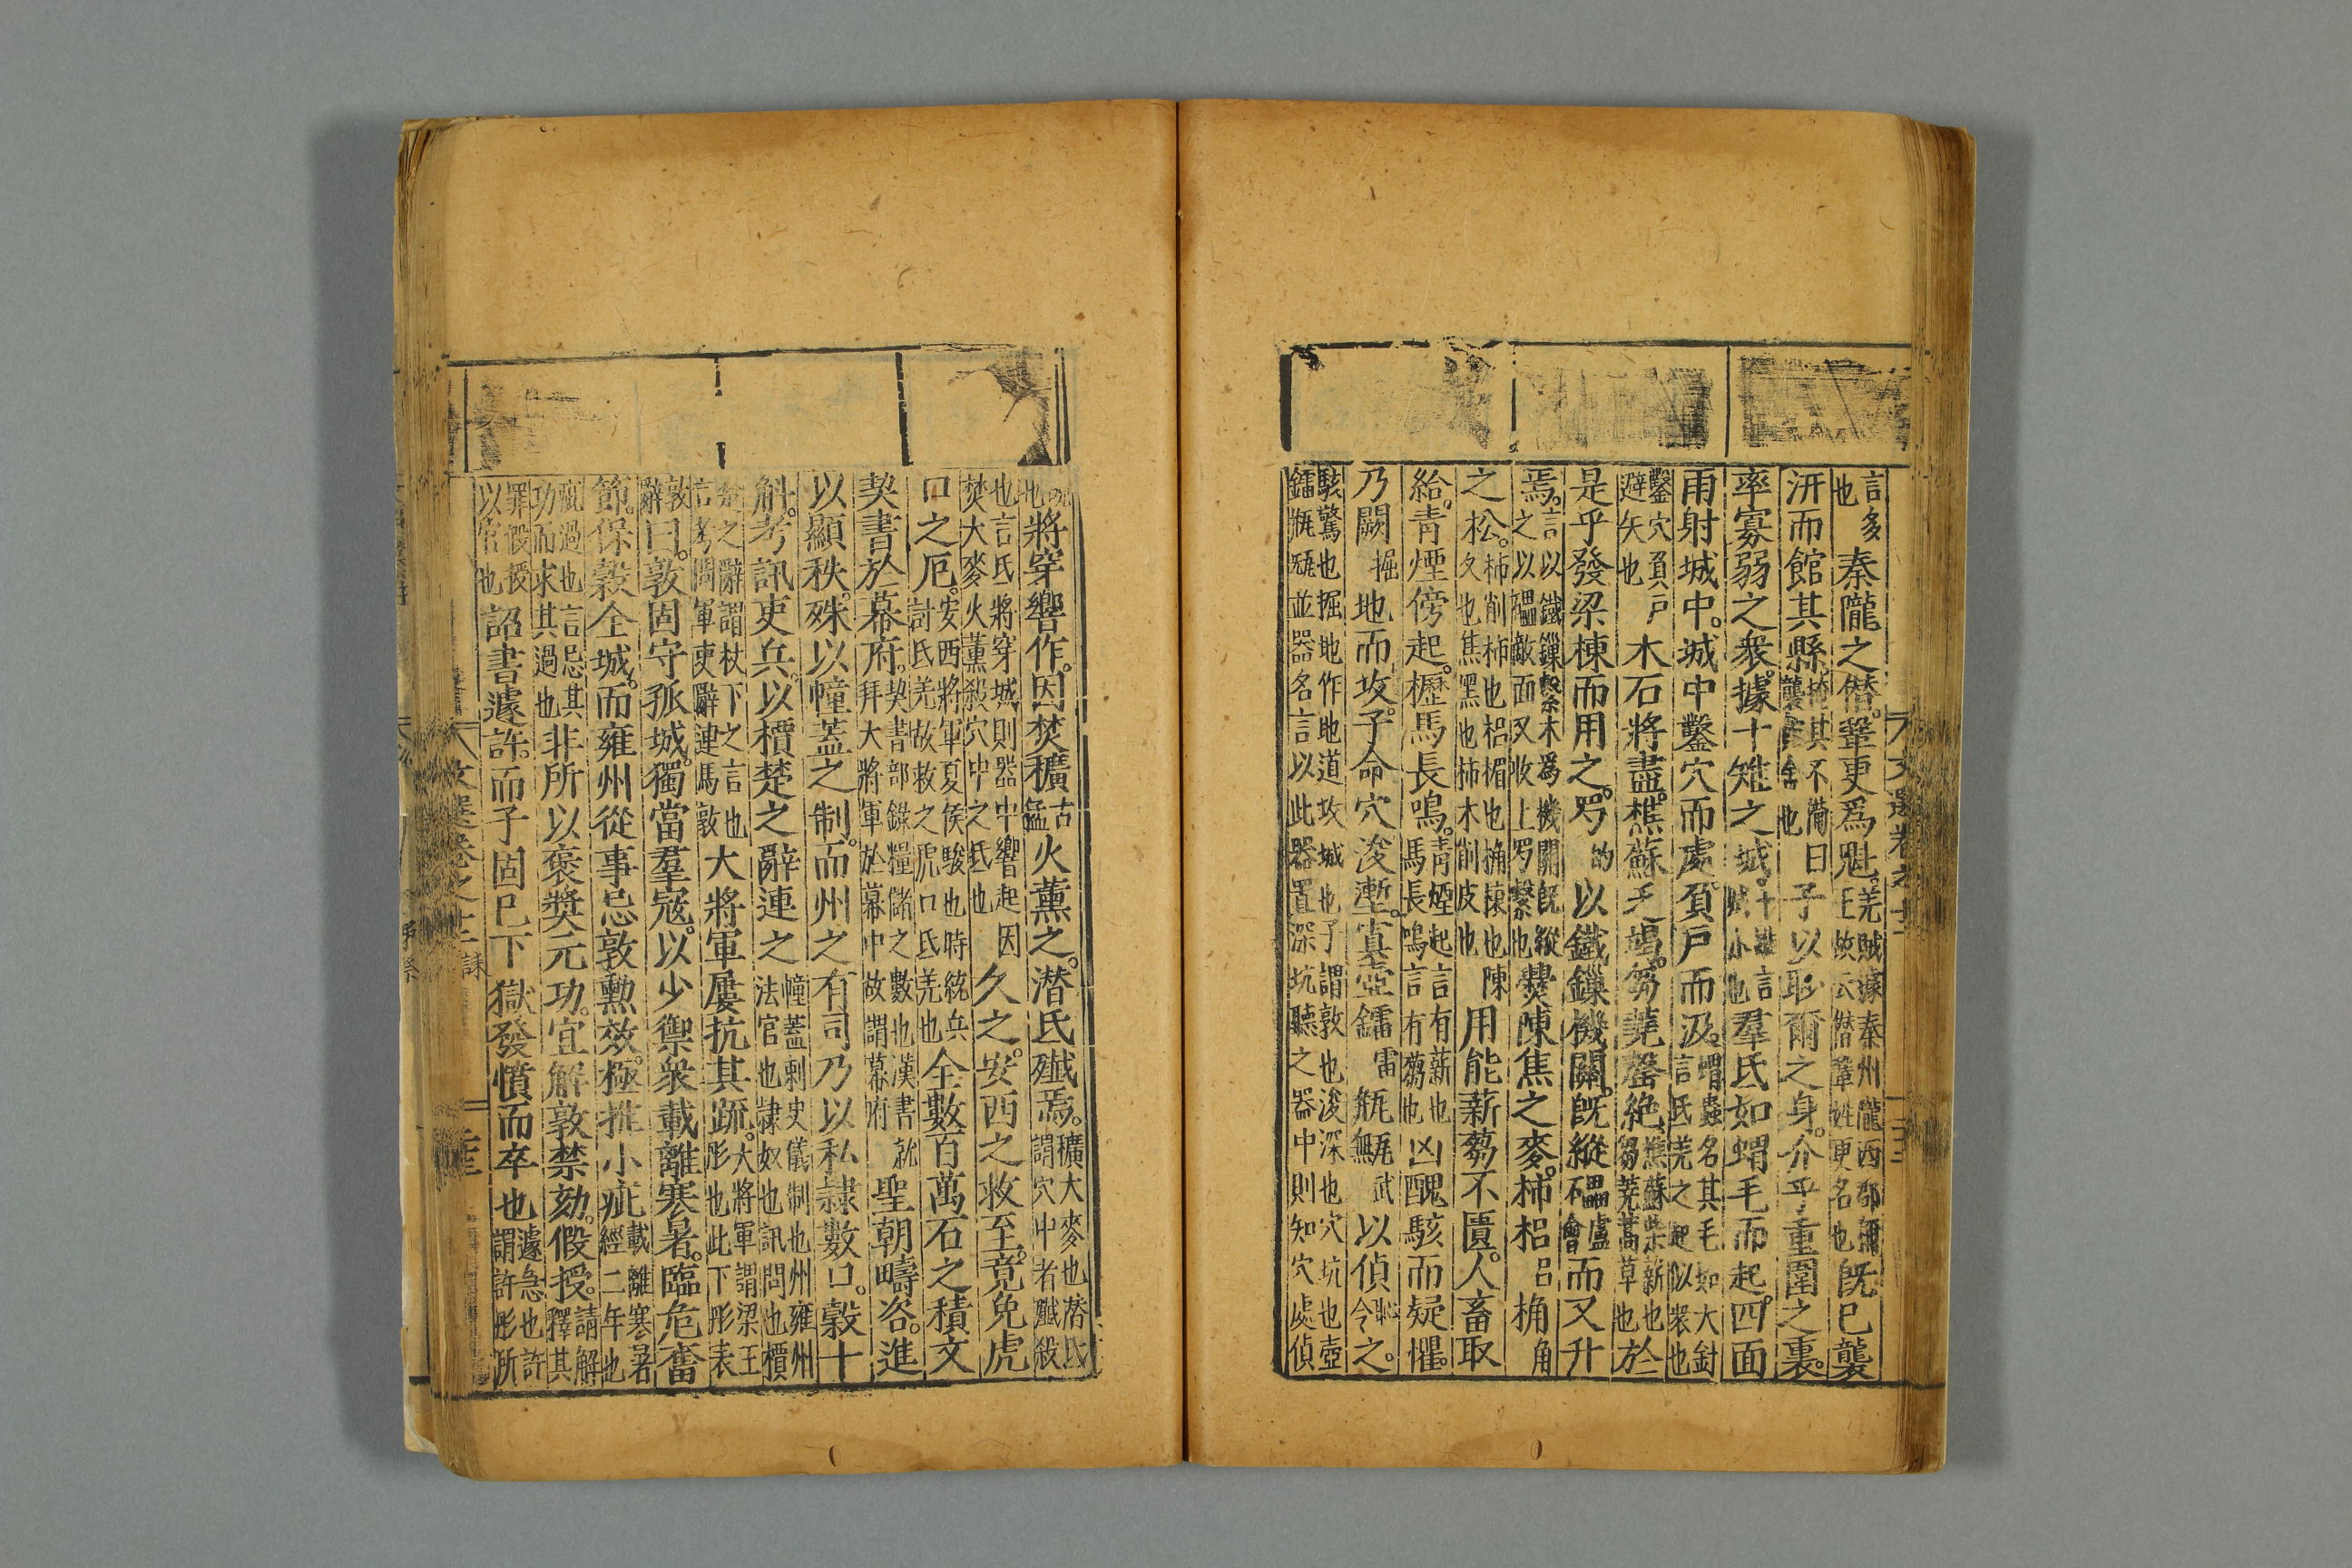 言多也秦隴之僭鞏更爲魁羌賊據秦州隴西郡彌王故云僭鞏姓更名也旣已襲
汧而館其縣掩其不備曰襲舍也子以眇爾之身介乎重圍之裏
率寡弱之衆據十雉之城十雉言城小也羣氐如蝟毛而起四面
雨射城中城中鑿穴而處負戸而汲蝟蟲名其毛如大針言氐羌之起似衆也
鑿穴負戸避矢也木石將盡樵蘇乏竭芻蕘罄絶樵蘇柴薪也芻蕘蒿草也於
是乎發梁棟而用之罗的以鐵鏁機關旣縱礧盧會而又升
焉言以鐵鏁繫木爲機關旣縱之以礧敵面又收上罗繫也爨陳焦之麥柿梠呂桷角
之松柿削柿也梠楣也桷榱也陳久也焦黑也柿木削皮也用能薪芻不匱人畜取
給青煙傍起櫪馬長鳴青煙起言有薪也馬長鳴言有芻也凶醜駭而疑懼
乃闕掘地而攻子命穴浚塹寘壺鐳雷甁甒武以偵令之
駭驚也掘地作地道攻城也子謂敦也浚深也穴坑也壺鐳甁甒並器名言以此器置深坑聽之器中則知穴處偵
也將穿響作因焚穬古猛火薰之潛氐殲焉穬大麥也潛氐謂穴中者殲殺
也言氐將穿城則器中響起因焚大麥火薰殺穴中之氐也久之安西之救至竟免虎
口之厄安西將軍夏侯駿也時統兵討氐羌故救之虎口氐羌也全數百萬石之積文
契書於幕府契書部錄糧儲之數也漢書就拜大將軍於幕中故謂幕府聖朝疇咨進
以顯秩殊以幢蓋之制而州之有司乃以私隷數口穀十
斛考訊吏兵以檟楚之辭連之幢蓋刺史儀制也州雍州法官也隷奴也訊問也檟
楚之辭謂杖下之言也言考問軍吏辭連馬敦大將軍屢抗其疏大將軍謂梁王肜也此下肜表
敦辭曰敦固守孤城獨當羣寇以少禦衆載離寒暑臨危奮
節保穀全城而雍州從事忌敦勳效極推小疵載離寒暑經二年也
疵過也言忌其功而求其過也非所以褒獎元功宜解敦禁劾假授請解釋其
罪假授以官也詔書遽許而子固已下獄發憤而卒也遽急也許謂許肜所
文選卷之十二
誄